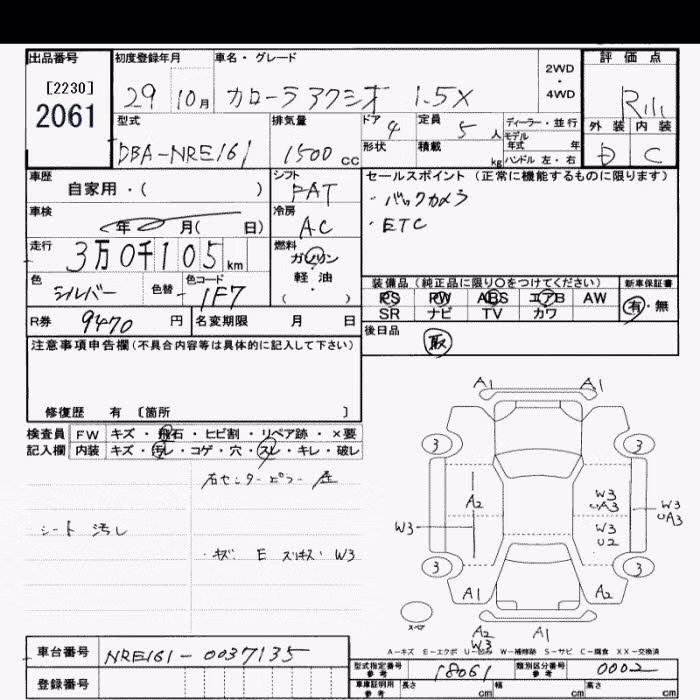 出品番号 初度登録年月 車名・グレード 2WD・4WD 評価点
[2230]
2061
29 10月 カローラアクシオ 1.5X
型式 排気量 ドア 定員 ディーラー・並行 モデル年式 年 外装 内装
DBA-NRE161 1500cc 4 5人 D C
形状 積載 kg ハンドル 左・右
車歴 シフト セールスポイント (正常に機能するものに限ります)
自家用・( ) FAT ・バックカメラ
車検 冷房 ・ETC
年 月( 日) AC
走行 燃料
3万0千105km ガソリン
軽・油
( )
色 色替 色コード 装備品 (純正品に限り〇をつけてください) 新車保証書
シルバー 1F7 PS PW ABS エアB AW 有・無
SR ナビ TV カワ
R券 9470円 名変期限 月 日 後日品 取
注意事項申告欄 (不具合内容等は具体的に記入して下さい)
修復歴 有 〔箇所 〕
検査員 FW キズ・飛石・ヒビ割・リペア跡・×要
記入欄 内装 キズ・汚レ・コゲ・穴・スレ・キレ・破レ
シート 汚レ
キズ E W3
A1 A1
3 3
A2 W3 A3 W3 A3
W3 W3 U2
3 3
A1 A2
スペア
A2 A1
W3
A-キズ E-エクボ U-凹み W-補修跡 S-サビ C-腐食 XX-交換済
車台番号 NRE161-0037135
型式指定番号 参考 18061 類別区分番号 参考 0002
登録番号
車庫証明用 参考 長さ cm 幅 cm 高さ cm